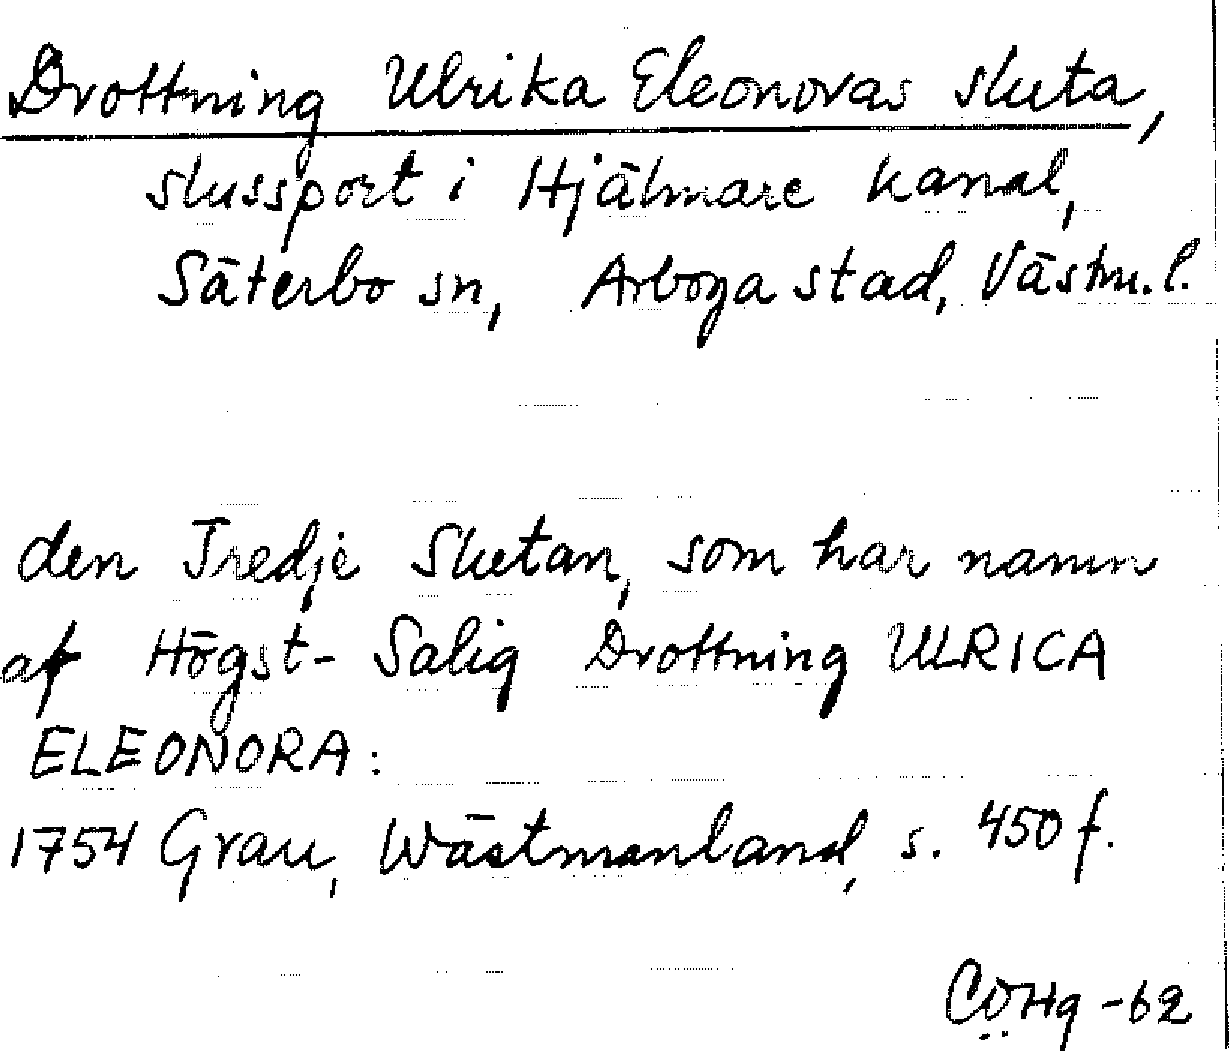 Drottning Ulrika Eleonoras sluta,
slussport i Hjälmare kanal,
Säterbo sn, Arboga stad, Västm.l.
den Tredje Slutan, som har namn
af Högst-Salig Drottning ULRICA
ELEONORA:
1754 Grau, Wästmanland, s. 450 f.
CÖHg -62